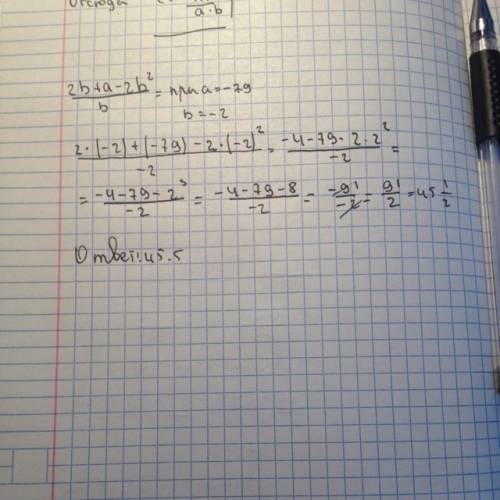 Отсюда
a·b
(2b+a-2b²)/b = при a=-79
b=-2
(2·(-2)+(-79)-2·(-2)²)/-2 = (-4-79-2·2²)/-2 =
= (-4-79-2³)/-2 = (-4-79-8)/-2 = -91/-2 = 91/2 = 45 1/2
Ответ: 45.5